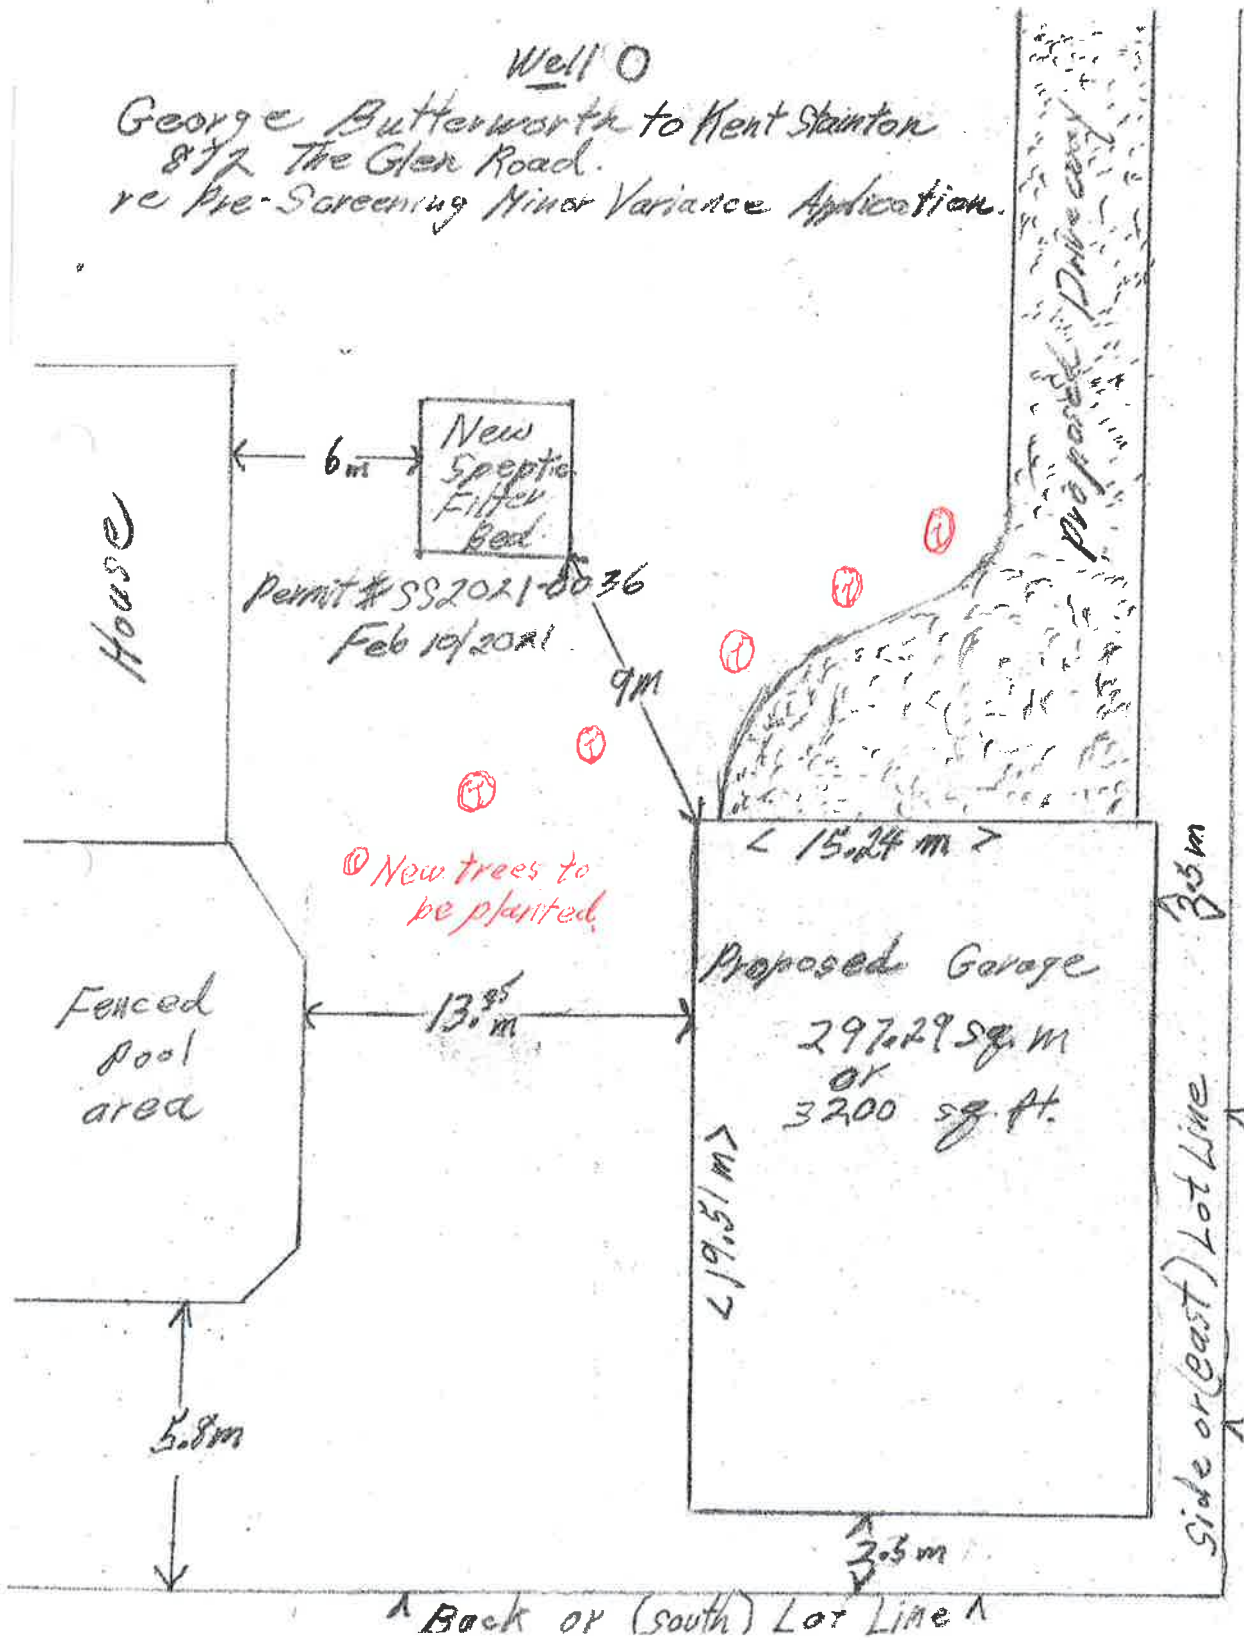 Well O
George Butterworth to Kent Stainton
872 The Glen Road.
re Pre-Screening Minor Variance Application.
Proposed Driveway
House
6m
New
Speptic
Filter
Bed.
Permit # SS2021-0036
Feb 10/2021
9m
T
T
T
T
T
T New trees to
be planted.
< 15.24 m >
3.5 m
Proposed Garage
297.29 sq. m
or
3200 sq. ft.
<19.51 m>
Fenced
Pool
area
13.95 m
5.8m
3.5 m
Side or (east) Lot Line
Back or (south) Lot Line